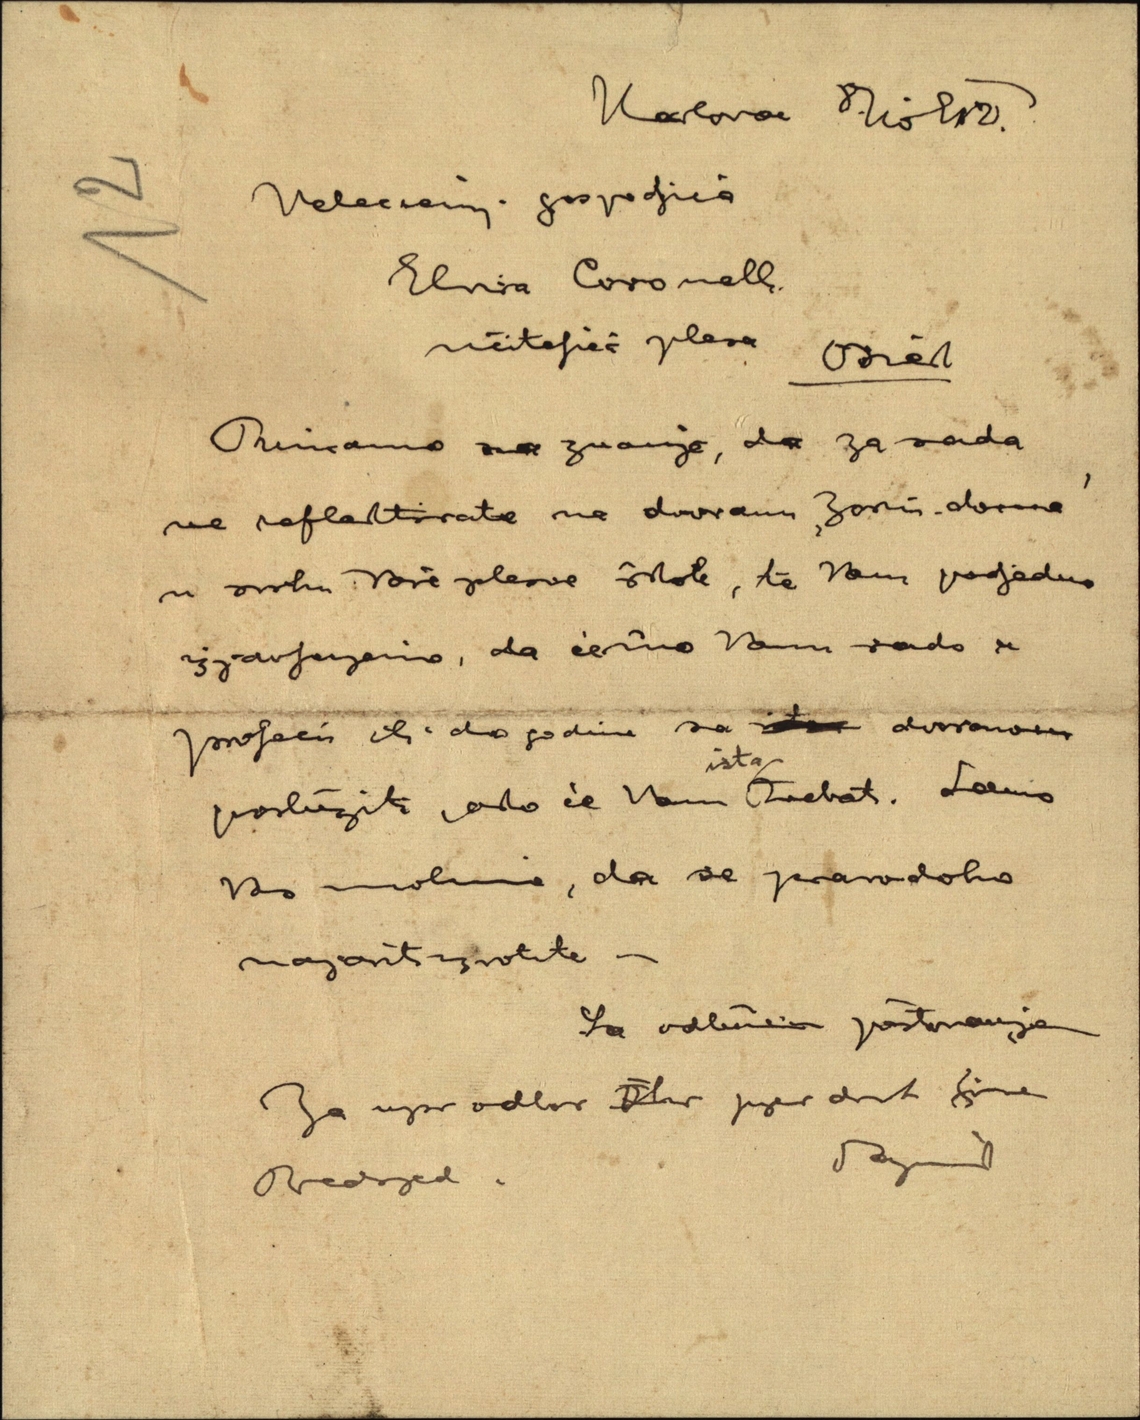 12
Karlovac
Velecienj. gospodjica
Elvira Coronelli
učiteljica plesa Osiek
Primamo na znanje, da za sada
ne reflektirate na dvoranu „Zorin-doma"
u svrhu Vaše plesne škole, te Vam podjedno
izjavljujemo, da ćemo Vam rado u
proljeću ili do godine sa dvoranom
poslužiti, ako će Vam ista trebati. Samo
Vas molimo, da se pravodobno
najaviti izvolite —
Sa odličnim poštovanjem
Za upr odbor I hr pjev druž Zora
Predsjed.